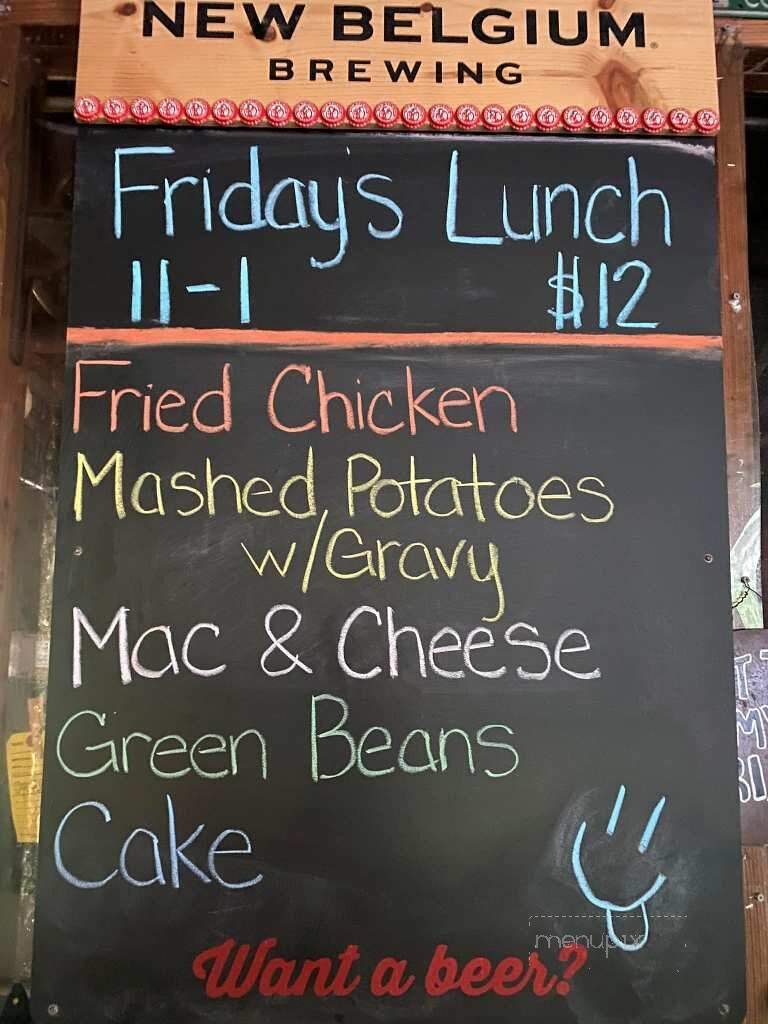 NEW BELGIUM
BREWING
Friday's Lunch
11-1 $12
Fried Chicken
Mashed Potatoes
w/Gravy
Mac & Cheese
Green Beans
Cake
menupix
Want a beer?